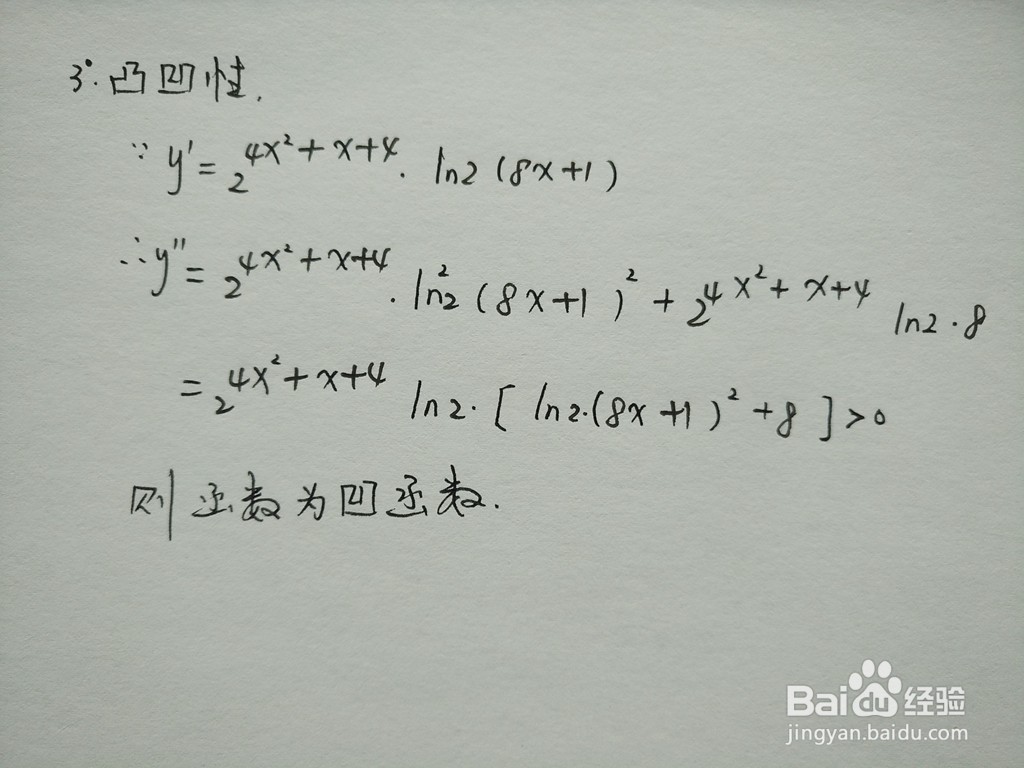 3°. 凸凹性.
∵ y' = 2^{4x²+x+4} · ln2 (8x+1)
∴ y'' = 2^{4x²+x+4} · ln²2 (8x+1)² + 2^{4x²+x+4} ln2 · 8
= 2^{4x²+x+4} ln2 · [ ln2·(8x+1)² + 8 ] > 0
则函数为凹函数.
Bai du 经验
jingyan.baidu.com